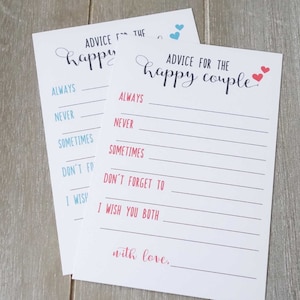 ADVICE FOR THE
happy
ALWAYS
NEVER
SOMETIMES
DON'T FO
I WISH
ADVICE FOR THE
happy couple
ALWAYS
NEVER
SOMETIMES
DON'T FORGET TO
I WISH YOU BOTH
with love,